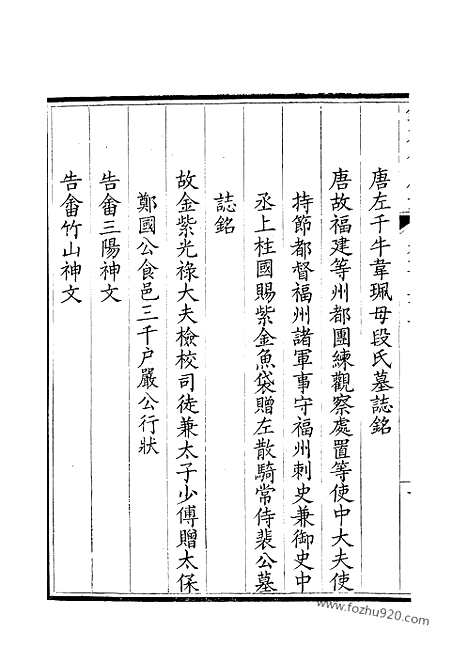 唐左千牛韋珮母段氏墓誌銘
唐故福建等州都團練觀察處置等使中大夫使
持節都督福州諸軍事守福州刺史兼御史中
丞上柱國賜紫金魚袋贈左散騎常侍裴公墓
誌銘
故金紫光祿大夫檢校司徒兼太子少傅贈太保
鄭國公食邑三千户嚴公行狀
告畬三陽神文
告畬竹山神文
www.fozhu920.com